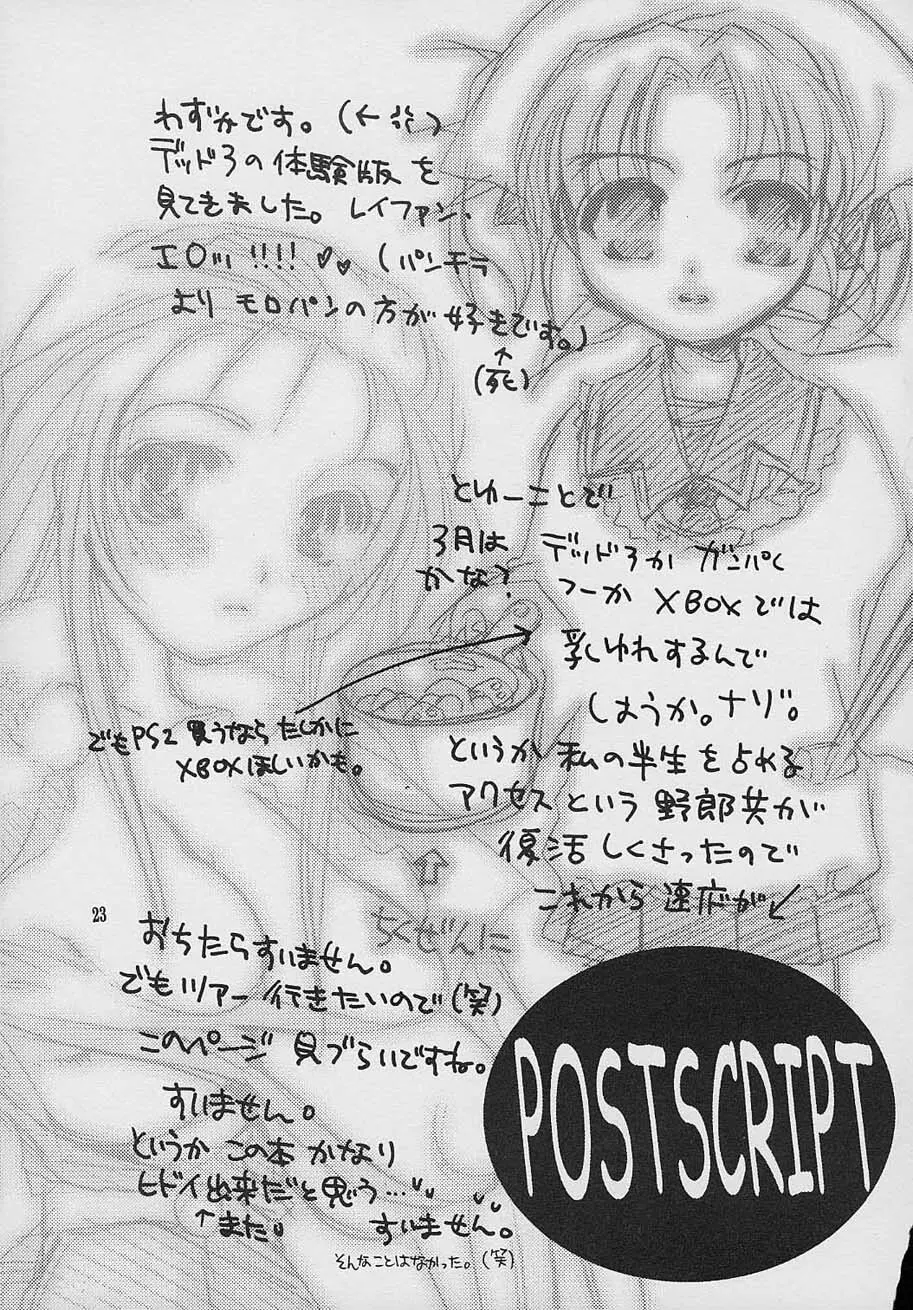 わずかです。(←
デッド3の体験版を
見てきました。レイファン、
エロッ!!!!♥♥(パンチラ
よりモロパンの方が好きです。)
↑
(死)
とゆーことで
3月は デッド3か ガンパレ
かな? つーか XBOXでは
乳ゆれするんで
しょうか。ナゾ。
でもPS2買うならたしかに
XBOXほしいかも。
というか私の半生を占める
アクセスという野郎共が
復活しくさったので
これから速度が↙
おちたらすいません。
でもツアー行きたいので(笑)
ちくぜんに
このページ見づらいですね。
すいません。
というかこの本かなり
ヒドイ出来だと思う…
↑また すいません。
そんなことはなかった。(笑)
23
POSTSCRIPT